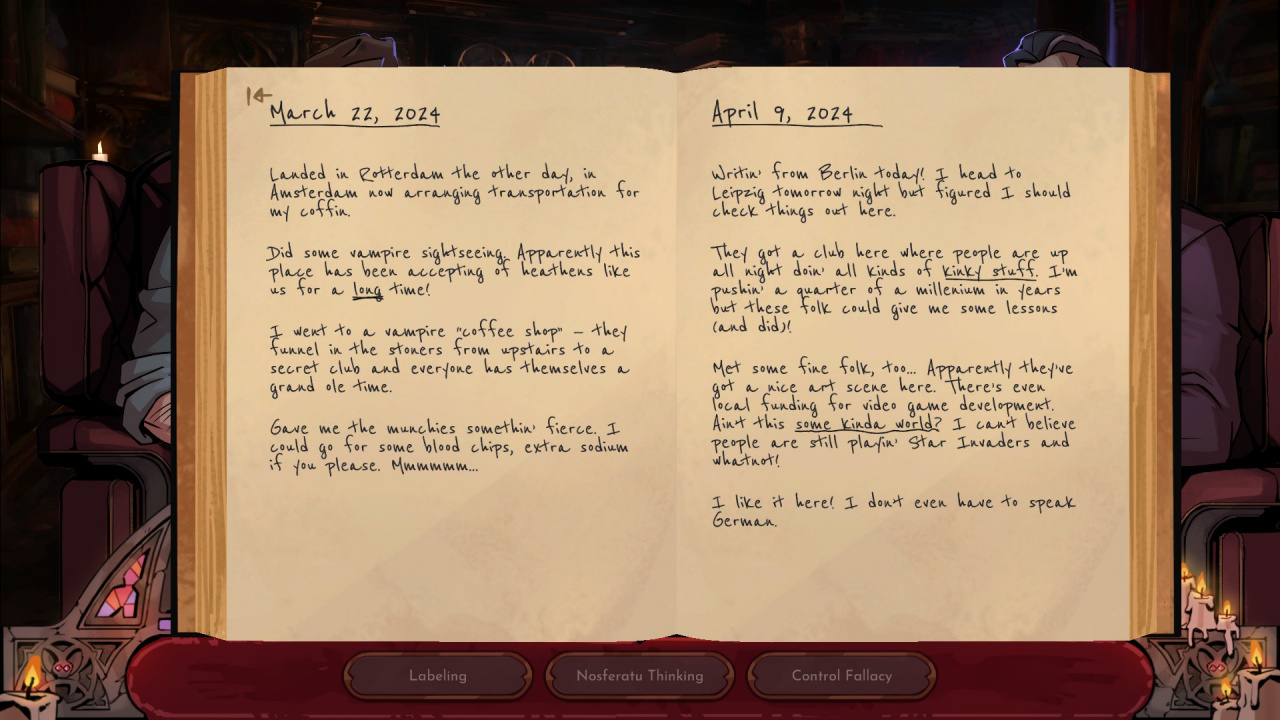 March 22, 2024
Landed in Rotterdam the other day, in
Amsterdam now arranging transportation for
my coffin.
Did some vampire sightseeing. Apparently this
place has been accepting of heathens like
us for a long time!
I went to a vampire "coffee shop" – they
funnel in the stoners from upstairs to a
secret club and everyone has themselves a
grand ole time.
Gave me the munchies somethin' fierce. I
could go for some blood chips, extra sodium
if you please. Mmmmmm...
April 9, 2024
Writin' from Berlin today! I head to
Leipzig tomorrow night but figured I should
check things out here.
They got a club here where people are up
all night doin' all kinds of kinky stuff. I'm
pushin' a quarter of a millenium in years
but these folk could give me some lessons
(and did)!
Met some fine folk, too... Apparently they've
got a nice art scene here. There's even
local funding for video game development.
Ain't this some kinda world? I can't believe
people are still playin' Star Invaders and
whatnot!
I like it here! I don't even have to speak
German.
Labeling
Nosferatu Thinking
Control Fallacy